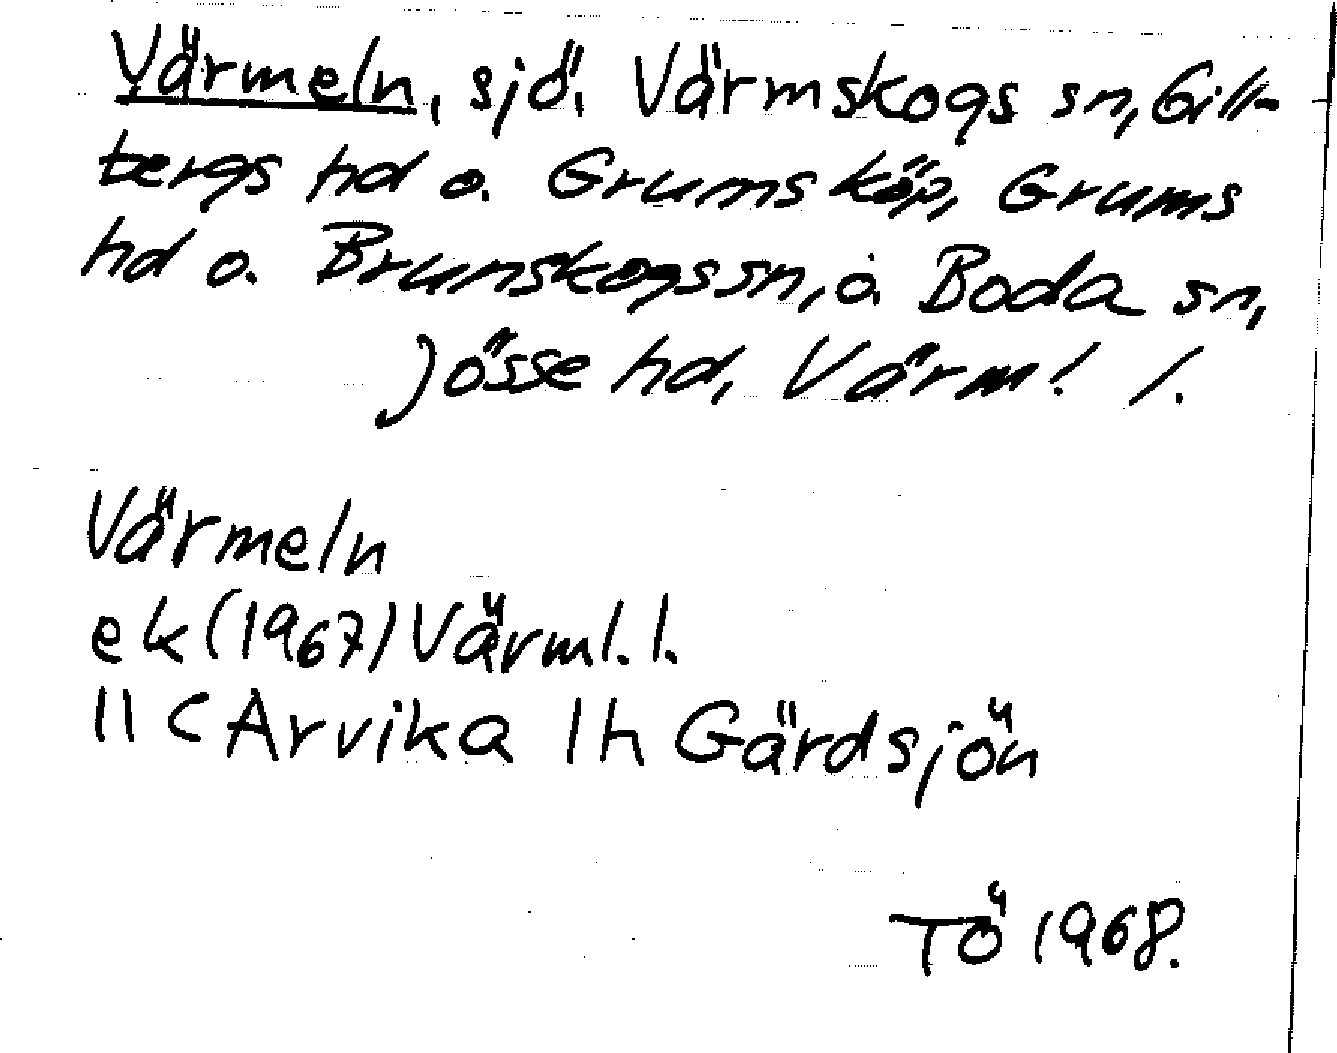 Värmeln, sjö. Värmskogs sn, Gill-
bergs hd o. Grums köp, Grums
hd o. Brunskogs sn, o. Boda sn,
Jösse hd, Värml l.
Värmeln
ek (1967) Värml. l.
11 C Arvika 1 h Gärdsjön
TÖ 1968.